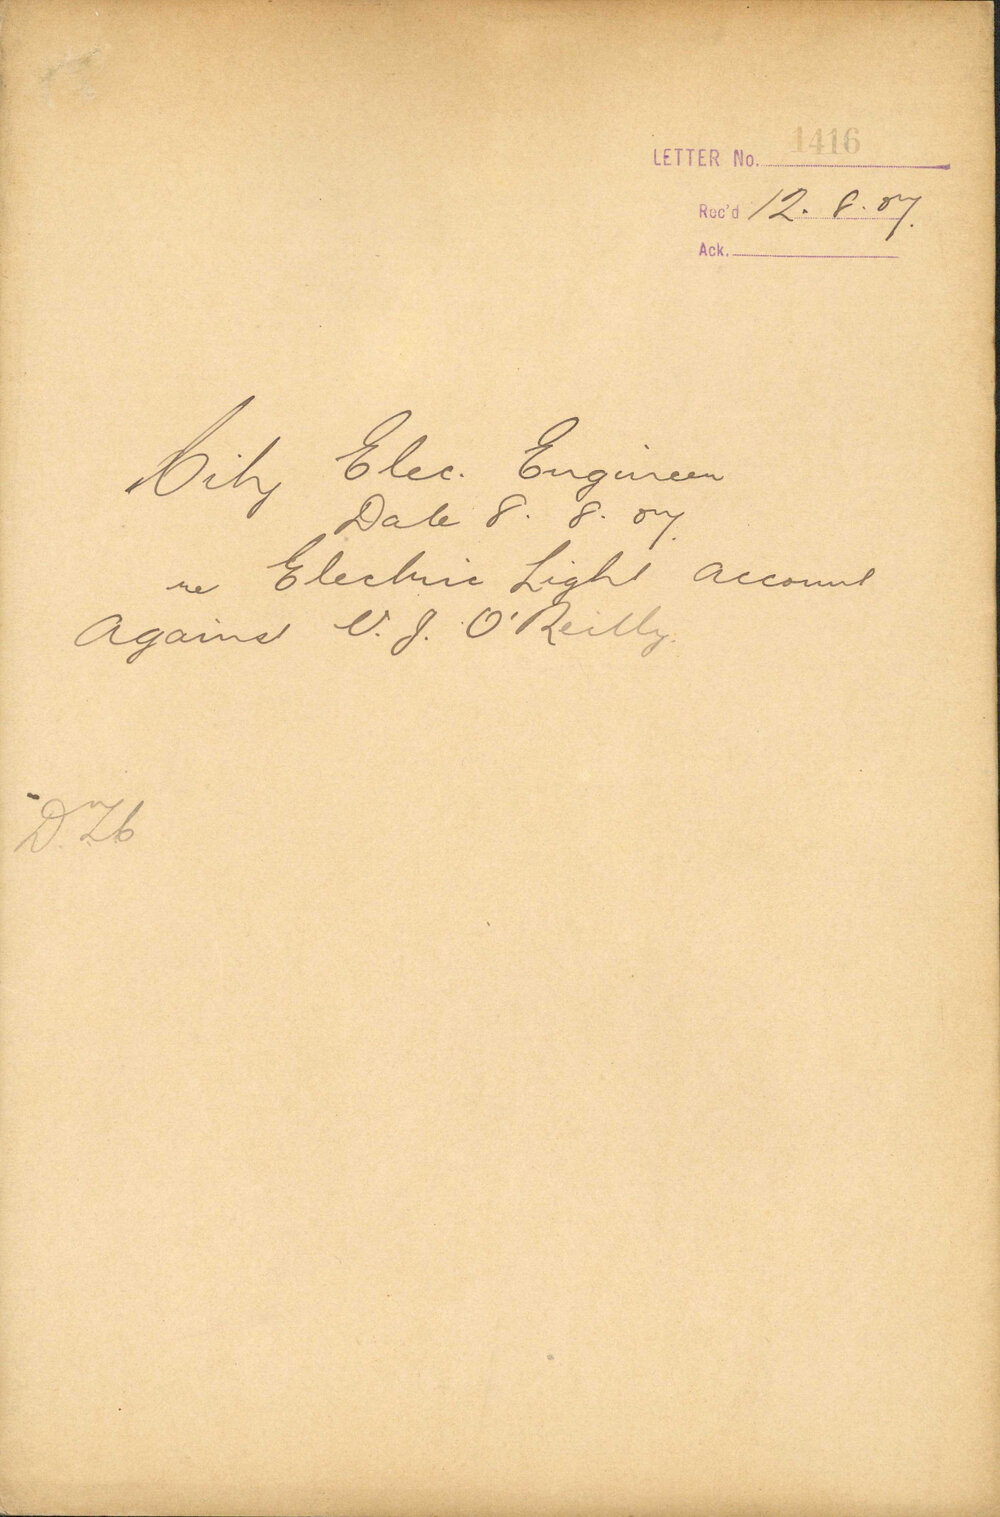 LETTER No. 1416
Rec'd 12. 8. 07.
Ack.
City Elec. Engineer
Date 8. 8. 07.
re Electric Light account
against V. J. O'Reilly.